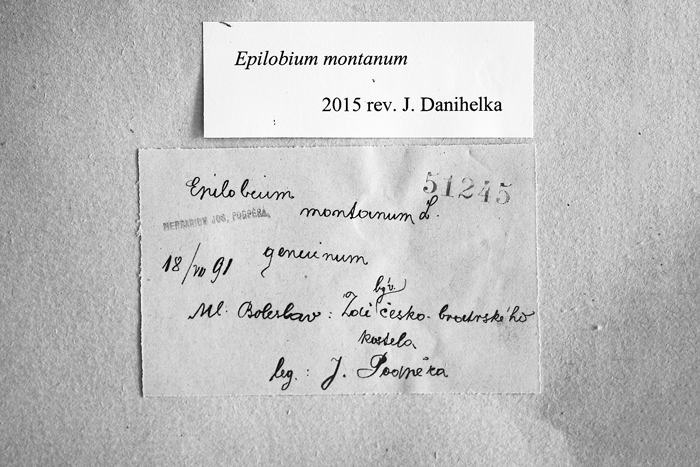 Epilobium montanum
2015 rev. J. Danihelka
51245
Epilobium
montanum L.
HERBARIUM JOS. PODPĚRA.
genuinum
18/VII 91
býv.
Ml. Boleslav: Zdi česko-bratrského
kostela
leg.: J. Podpěra